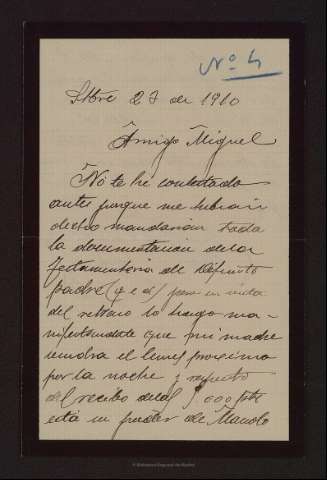 Nº 4
Sbre 27 de 1910
Amigo Miguel
No te he contestado
antes porque me habian
dicho mandarian toda
la documentacion dela
Testamentaria de Difunto
padre (q e d) pero en vista
del retraso lo hago ma-
nifestandote que mi madre
vendra el lunes proximo
por la noche y respecto
del recibo delas 5000 pts
esta en poder de Manolo
© Biblioteca Regional de Madrid